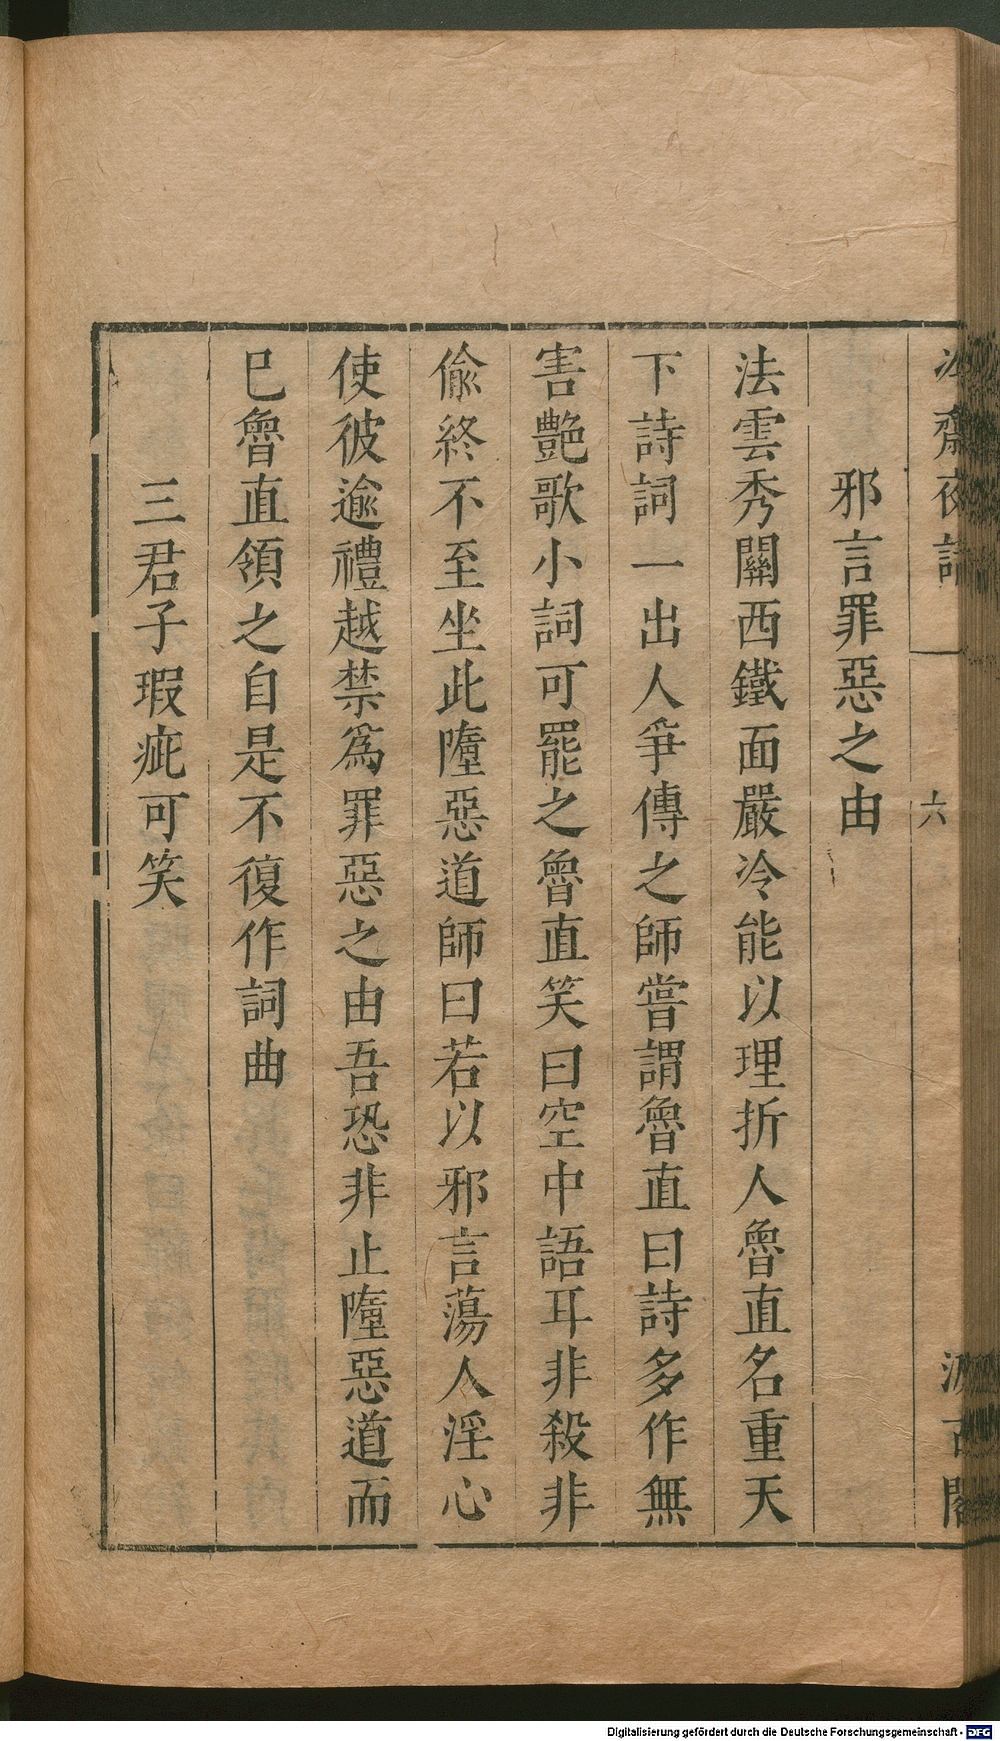 冷齋夜話
六
汲古閣
邪言罪惡之由
法雲秀關西鐵面嚴冷能以理折人魯直名重天
下詩詞一出人爭傳之師嘗謂魯直曰詩多作無
害艷歌小詞可罷之魯直笑曰空中語耳非殺非
偷終不至坐此墮惡道師曰若以邪言蕩人淫心
使彼逾禮越禁爲罪惡之由吾恐非止墮惡道而
已魯直領之自是不復作詞曲
三君子瑕疵可笑
Digitalisierung gefördert durch die Deutsche Forschungsgemeinschaft - DFG